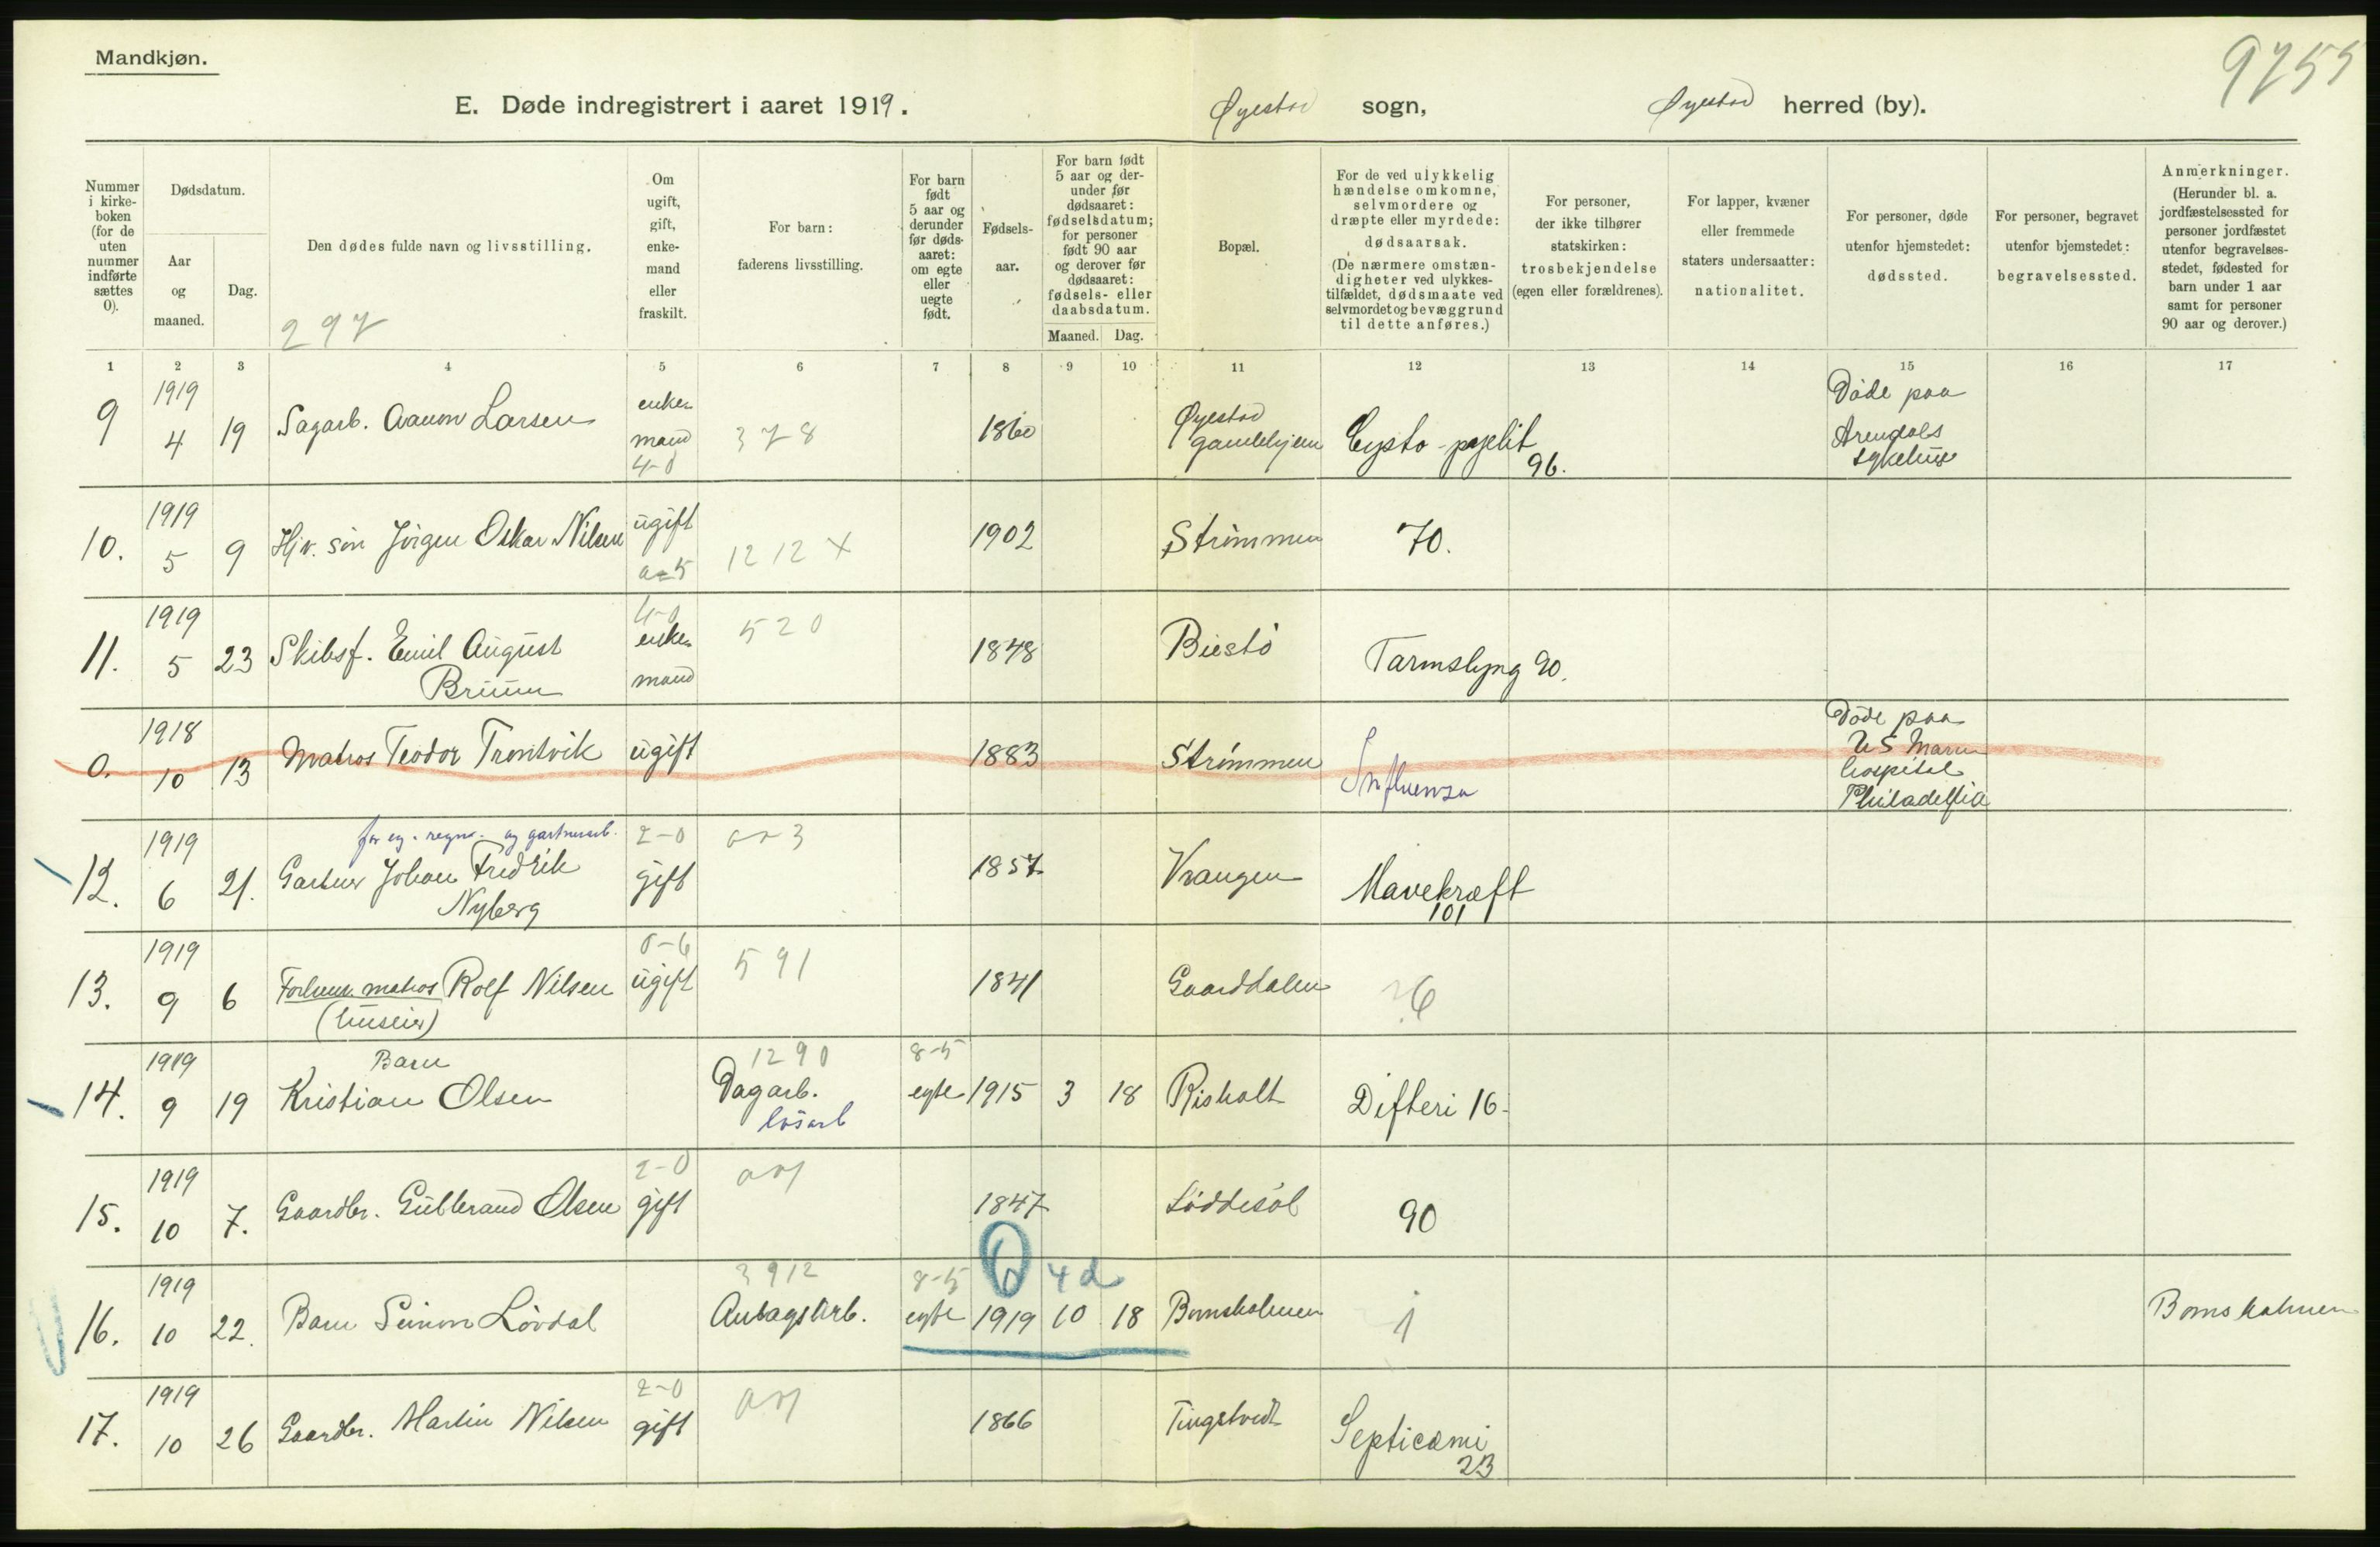 Mandkjøn.
9255
E. Døde indregistrert i aaret 1919.
Øyestad sogn,
Øyestad herred (by).
Nummer i kirke-boken (for de uten nummer indførte sættes 0).
Dødsdatum.
Aar og maaned.
Dag.
Den dødes fulde navn og livsstilling.
297
Om ugift, gift, enke-mand eller fraskilt.
For barn: faderens livsstilling.
For barn født 5 aar og derunder før døds-aaret: om egte eller uegte født.
Fødsels-aar.
For barn født 5 aar og der-under før dødsaaret: fødselsdatum; for personer født 90 aar og derover før dødsaaret: fødsels- eller daabsdatum.
Maaned. Dag.
Bopæl.
For de ved ulykkelig hændelse omkomne, selvmordere og dræpte eller myrdede: dødsaarsak. (De nærmere omstæn-digheter ved ulykkes-tilfældet, dødsmaate ved selvmordet og bevæggrund til dette anføres.)
For personer, der ikke tilhører statskirken: trosbekjendelse (egen eller forældrenes).
For lapper, kvæner eller fremmede staters undersaatter: nationalitet.
For personer, døde utenfor hjemstedet: dødssted.
For personer, begravet utenfor hjemstedet: begravelsessted.
Anmerkninger. (Herunder bl. a. jordfæstelsessted for personer jordfæstet utenfor begravelses-stedet, fødested for barn under 1 aar samt for personer 90 aar og derover.)
1 2 3 4 5 6 7 8 9 10 11 12 13 14 15 16 17
9 1919 4 19 Sagarb. Aanon Larsen enke-mand 4-0 378 1860 Øyestad gamlehjem Cysto-pyelit 96. Døde paa Arendals sykehus
10. 1919 5 9 Hjv. søn Jørgen Oskar Nilsen ugift a=5 1212 X 1902 Strømmen 70.
11. 1919 5 23 Skibsf. Emil August Bruun 4-0 enke-mand 520 1848 Biestø Tarmslyng 90.
0. 1918 10 13 Matros Teodor Trontvik ugift 1883 Strømmen Influensa Døde paa US Marine hospital Philadelfia
12. 1919 6 21. for eg. regn. og gartnerarb. Gartner Johan Fredrik Nyberg 2-0 gift 1857 Vrangen Mavekræft 101
13. 1919 9 6 Forhenv. matros Rolf Nilsen (huseier) 0-6 ugift 591 1841 Gaarddalen
14. 1919 9 19 Barn Kristian Olsen 1290 Dagarb. løsarb 8-5 egte 1915 3 18 Risholt Difteri 16
15. 1919 10 7. Gaardbr. Gulbrand Olsen 2-0 gift 1847 Løddesøl 90
16. 1919 10 22. Barn Simon Løvdal 3912 Anlagsarb. 8-5 egte 1919 10 18 6 4 d Bomsholmen 1 Bomsholmen
17. 1919 10 26 Gaardbr. Martin Nilsen 2-0 gift 1866 Tingstveit Septicæmi 23